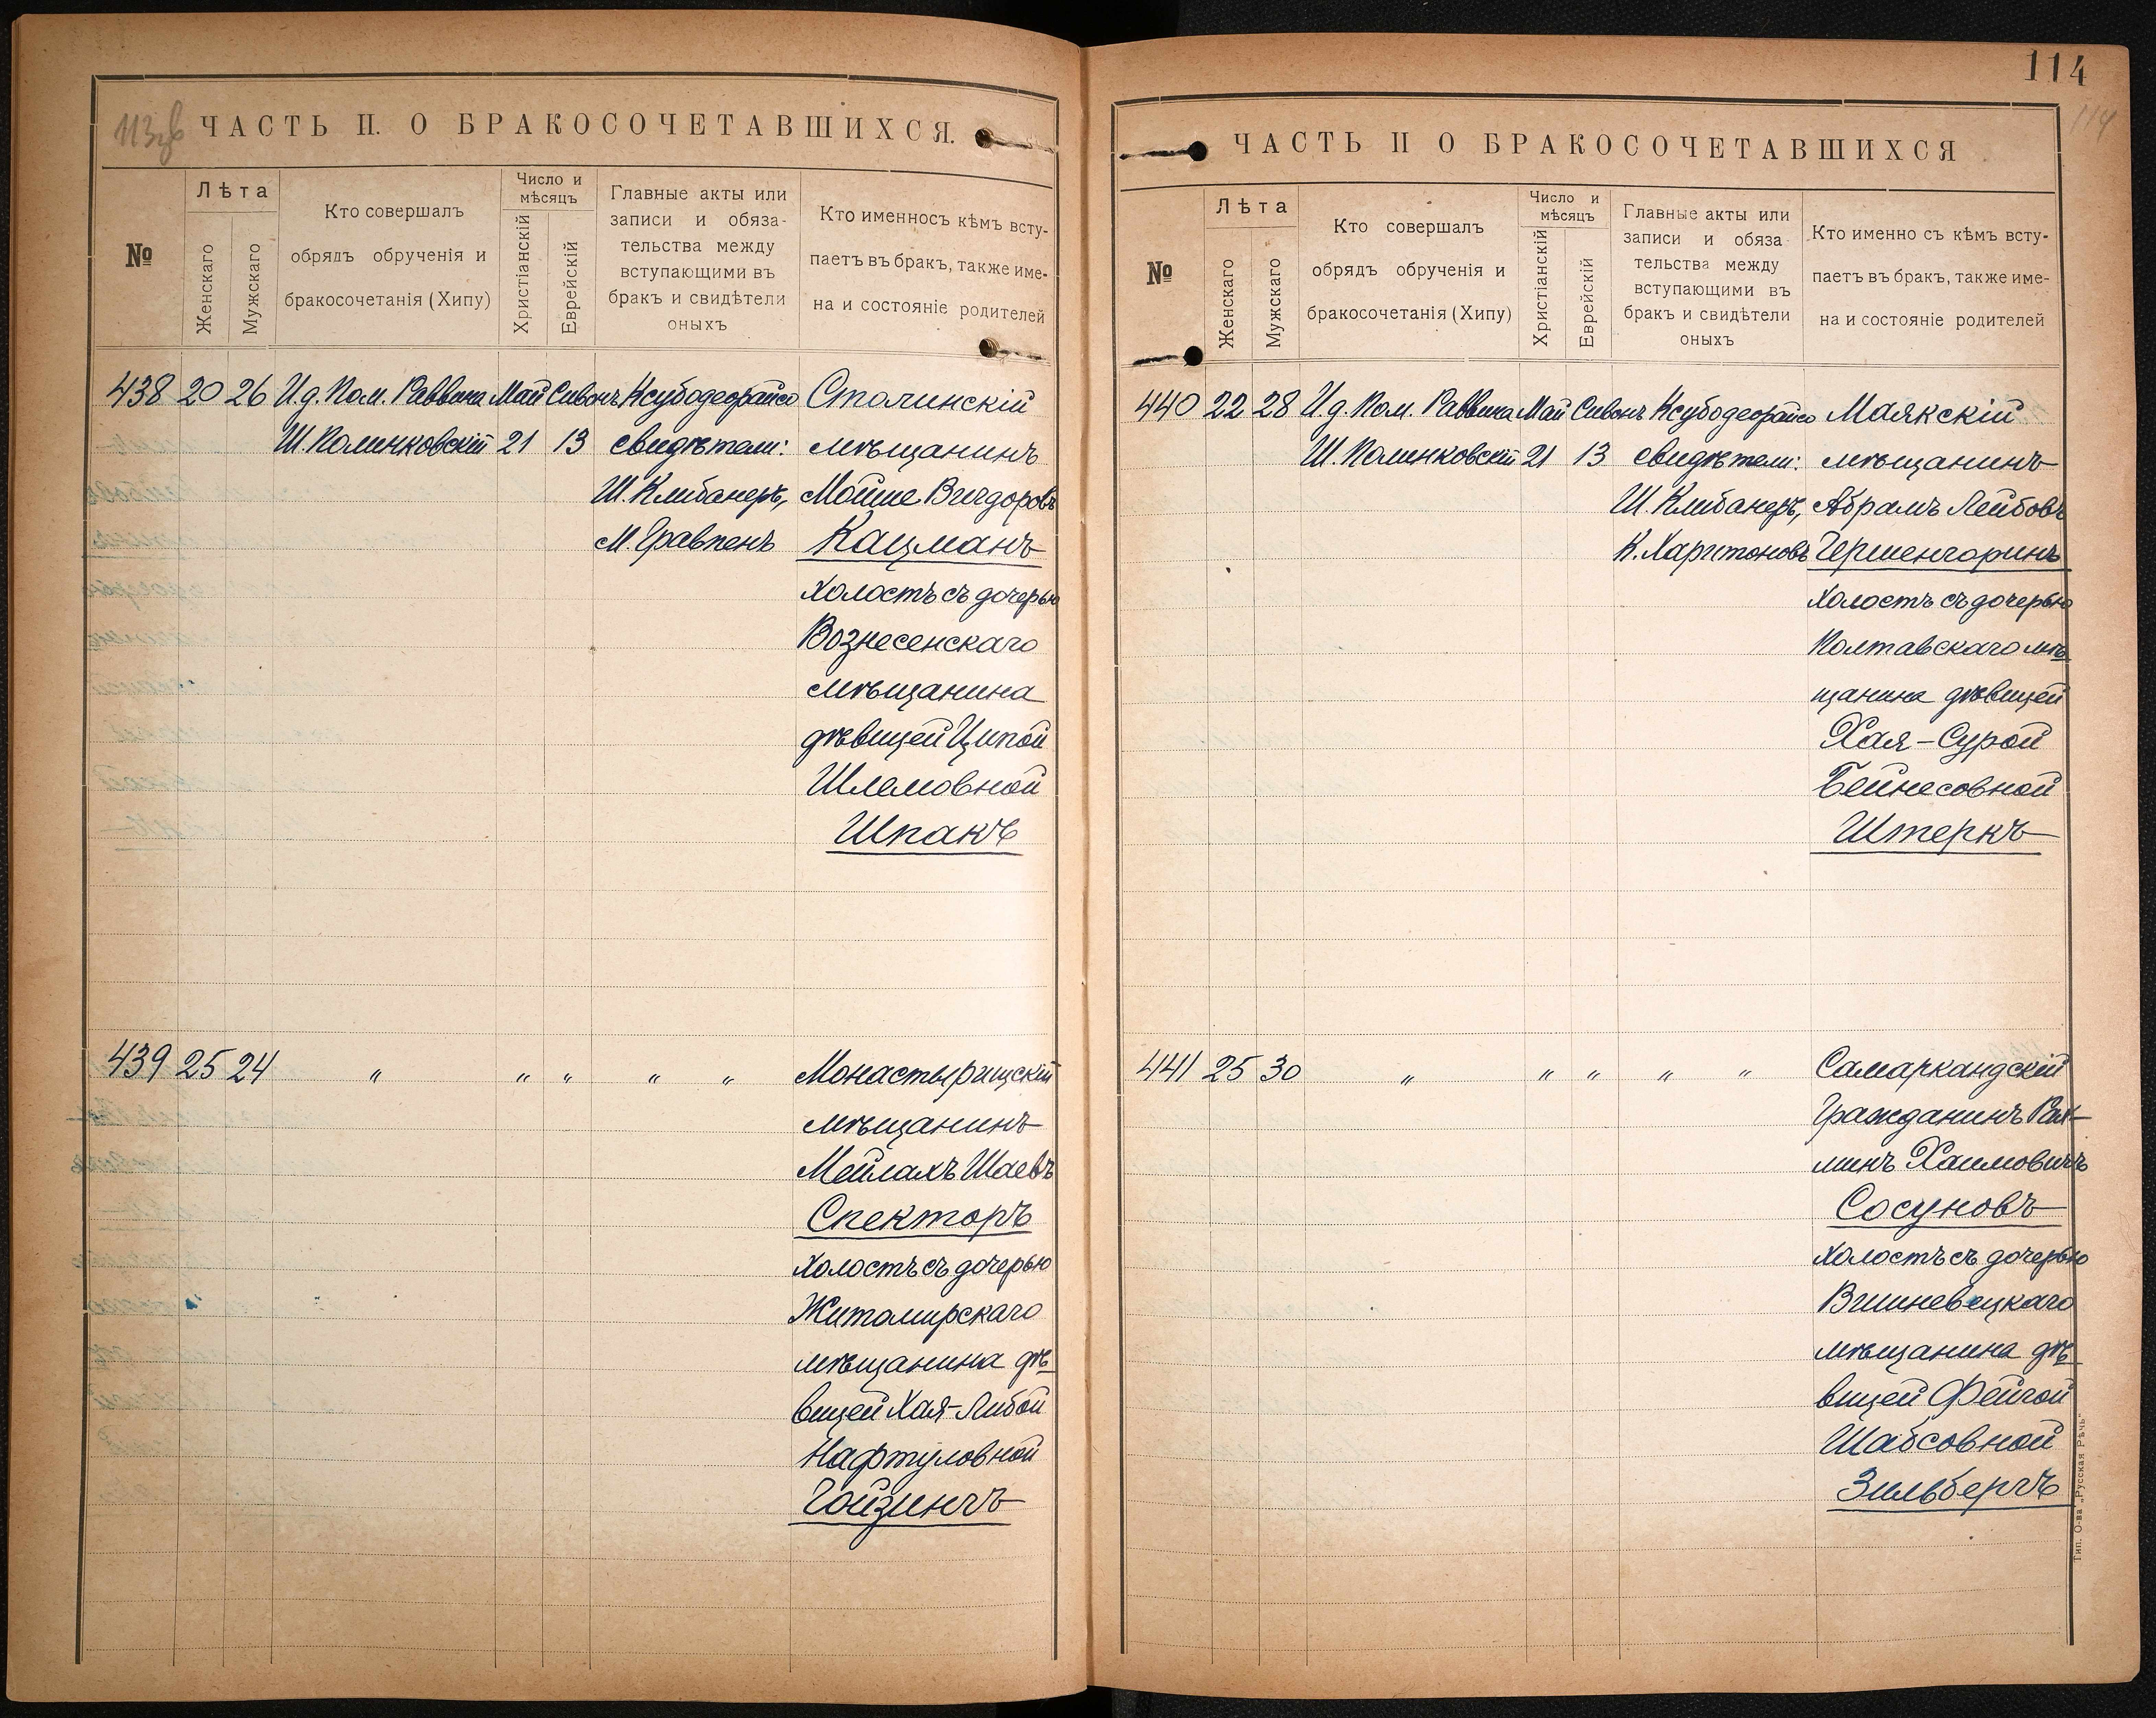 113об
ЧАСТЬ II. О БРАКОСОЧЕТАВШИХСЯ.
№
Лѣта
Женскаго
Мужскаго
Кто совершалъ
обрядъ обрученія и
бракосочетанія (Хипу)
Число и
мѣсяцъ
Христіанскій
Еврейскій
Главные акты или
записи и обяза-
тельства между
вступающими въ
бракъ и свидѣтели
оныхъ
Кто именносъ кѣмъ всту-
паетъ въ бракъ, также име-
на и состояніе родителей
438 20 26 И.д. Пом. Раввина Май Сивонъ Ксубодеорайсо Столинскій
Ш. Полинковскій 21 13 свидѣтели: мѣщанинъ
Ш. Клибанеръ, Мойше Вигдоровъ
М. Гравпенъ Кацманъ
холостъ съ дочерью
Вознесенскаго
мѣщанина
дѣвицей Ципой
Шлемовной
Шпакъ
439 25 24 " " " " " Монастырищскій
мѣщанинъ
Мейлахъ Шаевъ
Спекторъ
холостъ съ дочерью
Житомирскаго
мѣщанина дѣ-
вицей Хая-Либой
Нафтуловной
Гойзингъ
114
114
ЧАСТЬ II О БРАКОСОЧЕТАВШИХСЯ
№
Лѣта
Женскаго
Мужскаго
Кто совершалъ
обрядъ обрученія и
бракосочетанія (Хипу)
Число и
мѣсяцъ
Христіанскій
Еврейскій
Главные акты или
записи и обяза
тельства между
вступающими въ
бракъ и свидѣтели
оныхъ
Кто именно съ кѣмъ всту-
паетъ въ бракъ, также име-
на и состояніе родителей
440 22 28 И.д. Пом. Раввина Май Сивонъ Ксубодеорайсо Маякскій
Ш. Полинковскій 21 13 свидѣтели: мѣщанинъ
Ш. Клибанеръ, Абрамъ Лейбовъ
К. Харитоновъ Гершенгоринъ
холостъ съ дочерью
Полтавскаго мѣ-
щанина дѣвицей
Хая-Сурой
Бейнесовной
Штеркъ
441 25 30 " " " " " Самаркандскій
Гражданинъ Рах-
минъ Хаимовичъ
Сосуновъ
холостъ съ дочерью
Вишневецкаго
мѣщанина дѣ-
вицей Фейгой
Шабсовной
Зильбергъ
Тип. О-ва „Русская Рѣчь"